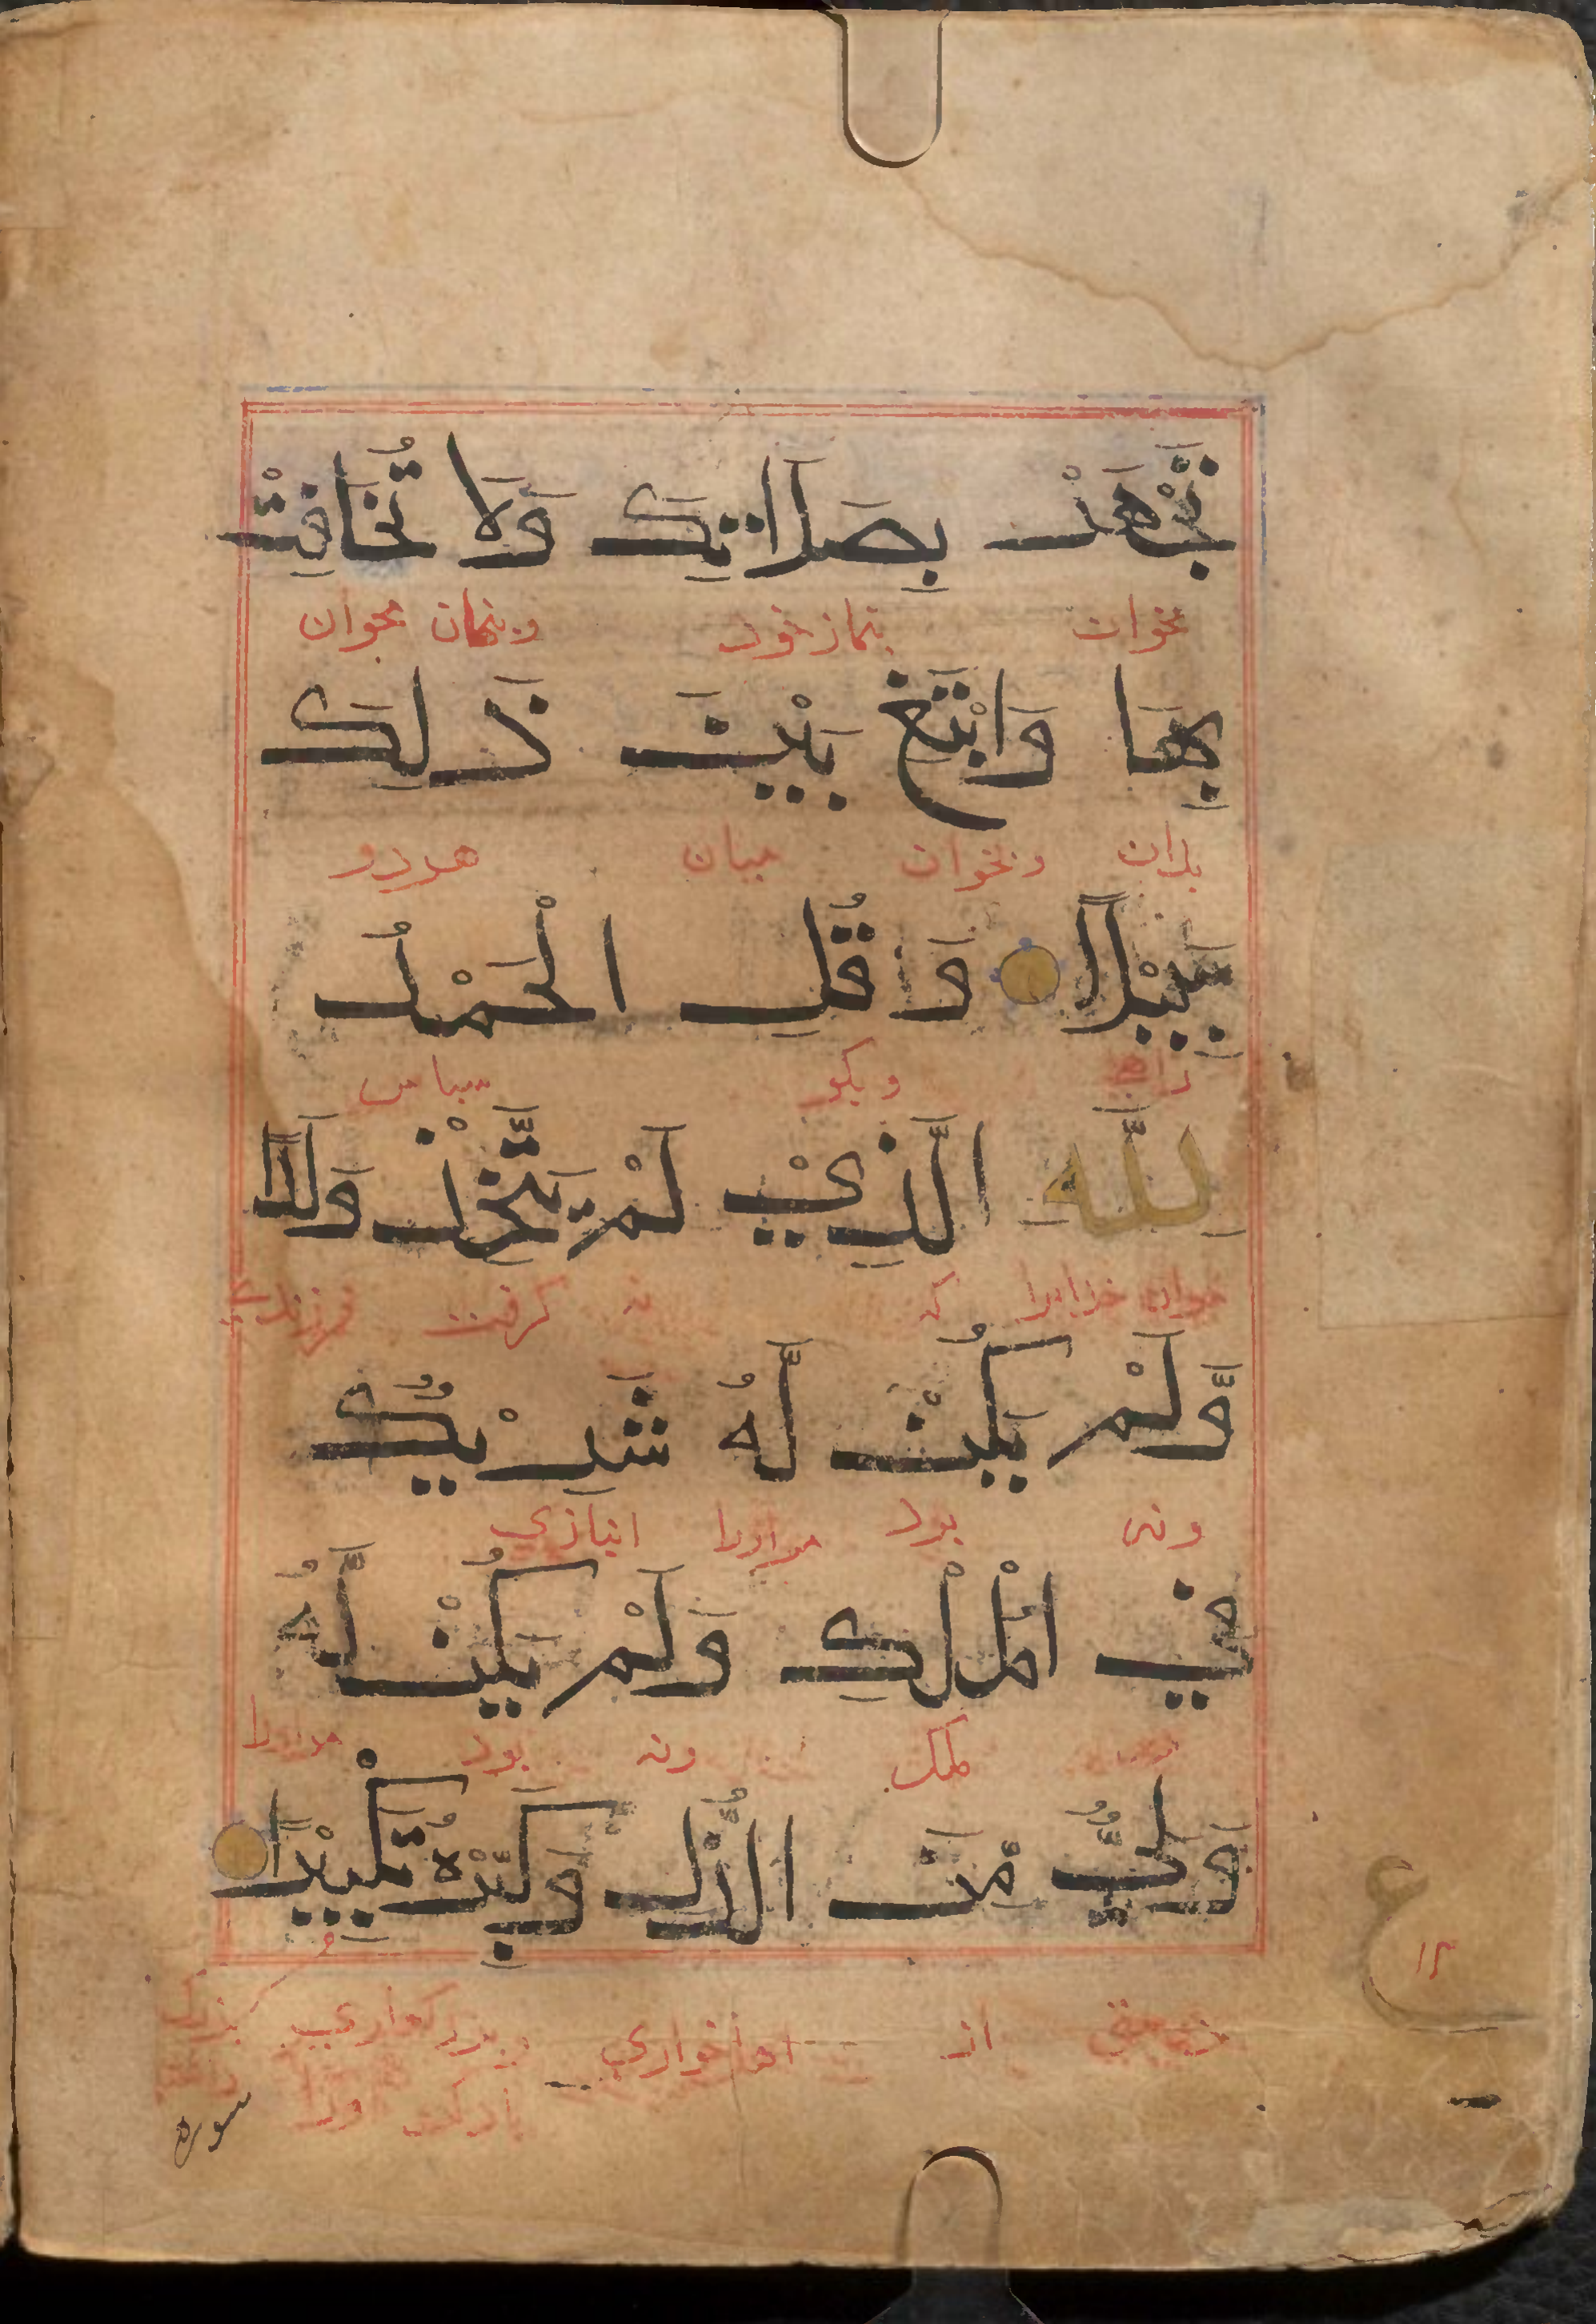 تَجْهَرْ بِصَلَاتِكَ وَلَا تُخَافِتْ
بخوان بنماز خود و پنهان مخوان
بِهَا وَابْتَغِ بَيْنَ ذَلِكَ
بدان و بخوان میان هر دو
سَبِيْلًا وَ قُلِ الْحَمْدُ
راه و بکو سپاس
لِلَّهِ الَّذِيْ لَمْ يَتَّخِذْ وَلَدًا
خدایرا که نه گرفت فرزندی
وَّلَمْ يَكُنْ لَّهُ شَرِيْكٌ
و نه بود مراورا انبازی
فِي الْمُلْكِ وَلَمْ يَكُنْ لَّهُ
ملک و نه بود مراورا
وَلِيٌّ مِّنَ الذُّلِّ وَكَبِّرْهُ تَكْبِيْرًا
ع
۱۲
از خواری
سوره